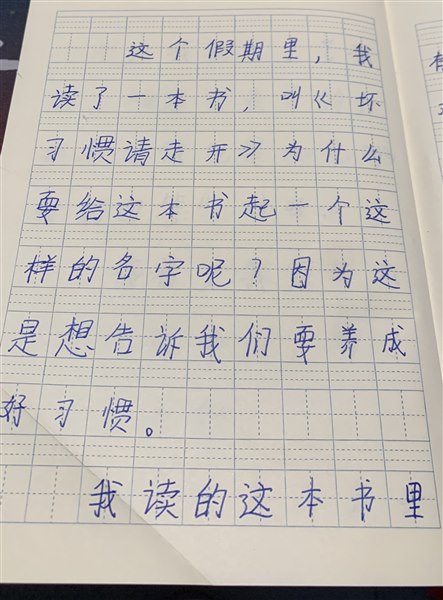 这个假期里，我
读了一本书，叫《坏
习惯请走开》为什么
要给这本书起一个这
样的名字呢？因为这
是想告诉我们要养成
好习惯。
我读的这本书里